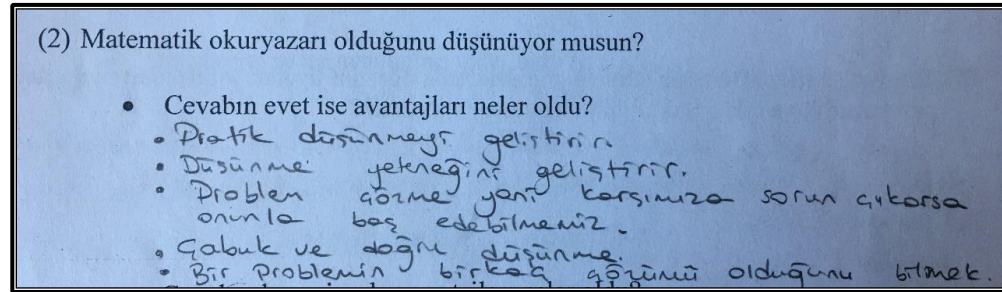 (2) Matematik okuryazarı olduğunu düşünüyor musun?
• Cevabın evet ise avantajları neler oldu?
• Pratik düşünmeyi geliştirir.
• Düşünme yeteneğini geliştirir.
• Problem çözme yani karşımıza sorun çıkarsa
onunla baş edebilmemiz.
• Çabuk ve doğru düşünme.
• Bir problemin birkaç çözümü olduğunu bilmek.